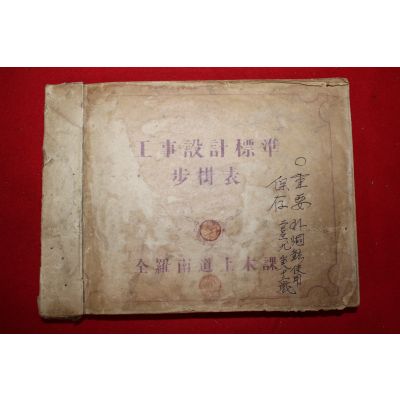 工事設計標準
步掛表
全羅南道土木課
○重要
保存